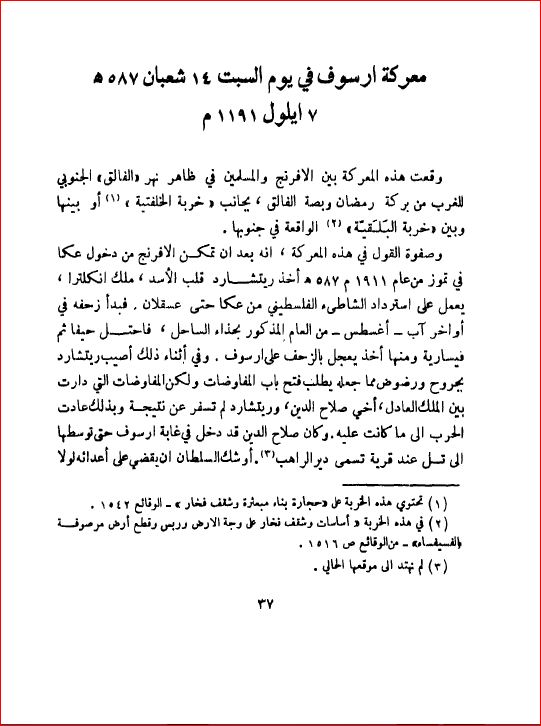 معركة ارسوف في يوم السبت ١٤ شعبان ٥٨٧ ه
٧ ايلول ١١٩١ م
وقعت هذه المعركة بين الافرنج والمسلمين في ظاهر نهر «الفالق» الجنوبي
للغرب من بركة رمضان وبصة الفالق ، بجانب « خربة الخلفتية » (١) أو بينها
وبين «خربة البَلـَقيّة» (٢) الواقعة في جنوبها .
وصفوة القول في هذه المعركة ، انه بعد ان تمكـن الافرنج من دخول عكا
في تموز من عام ١٩١١ م ٥٨٧ ه أخذ ريتشـارد قلب الأسد ، ملك انكلترا ،
يعمل على استرداد الشاطىء الفلسطيني من عكا حتى عسقلان . فبدأ زحفه في
أواخر آب – أغسطس – من العام المذكور بحذاء الساحل ، فاحتـل حيفا ثم
قيسارية ومنها أخذ يعجل بالزحف على ارسوف . وفي أثناء ذلك أصيب ريتشارد
بجروح ورضوض مما جعله يطلب فتح باب المفاوضات ولكن المفاوضات التي دارت
بين الملك العادل، أخي صلاح الدين، وريتشارد لم تسفر عن نتيجة وبذلك عادت
الحرب الى ما كانت عليه . وكان صلاح الدين قد دخل في غابة ارسوف حتى توسطها
الى تـل عند قرية تسمى دير الراهب (٣). أوشك السلطان ان يقضي على أعدائه لولا
(١) تحتوي هذه الخربة على «حجارة بناء مبعثرة وشقف فخار » – الوقائع ١٥٤٢ .
(٢) في هذه الخربة « أساسات وشقف فخار على وجة الارض وربس وقطع أرض مرصوفـة
بالفسيفساء» – من الوقائع ص ١٥١٦ .
(٣) لم نهتد الى موقعها الحالي .
٣٧